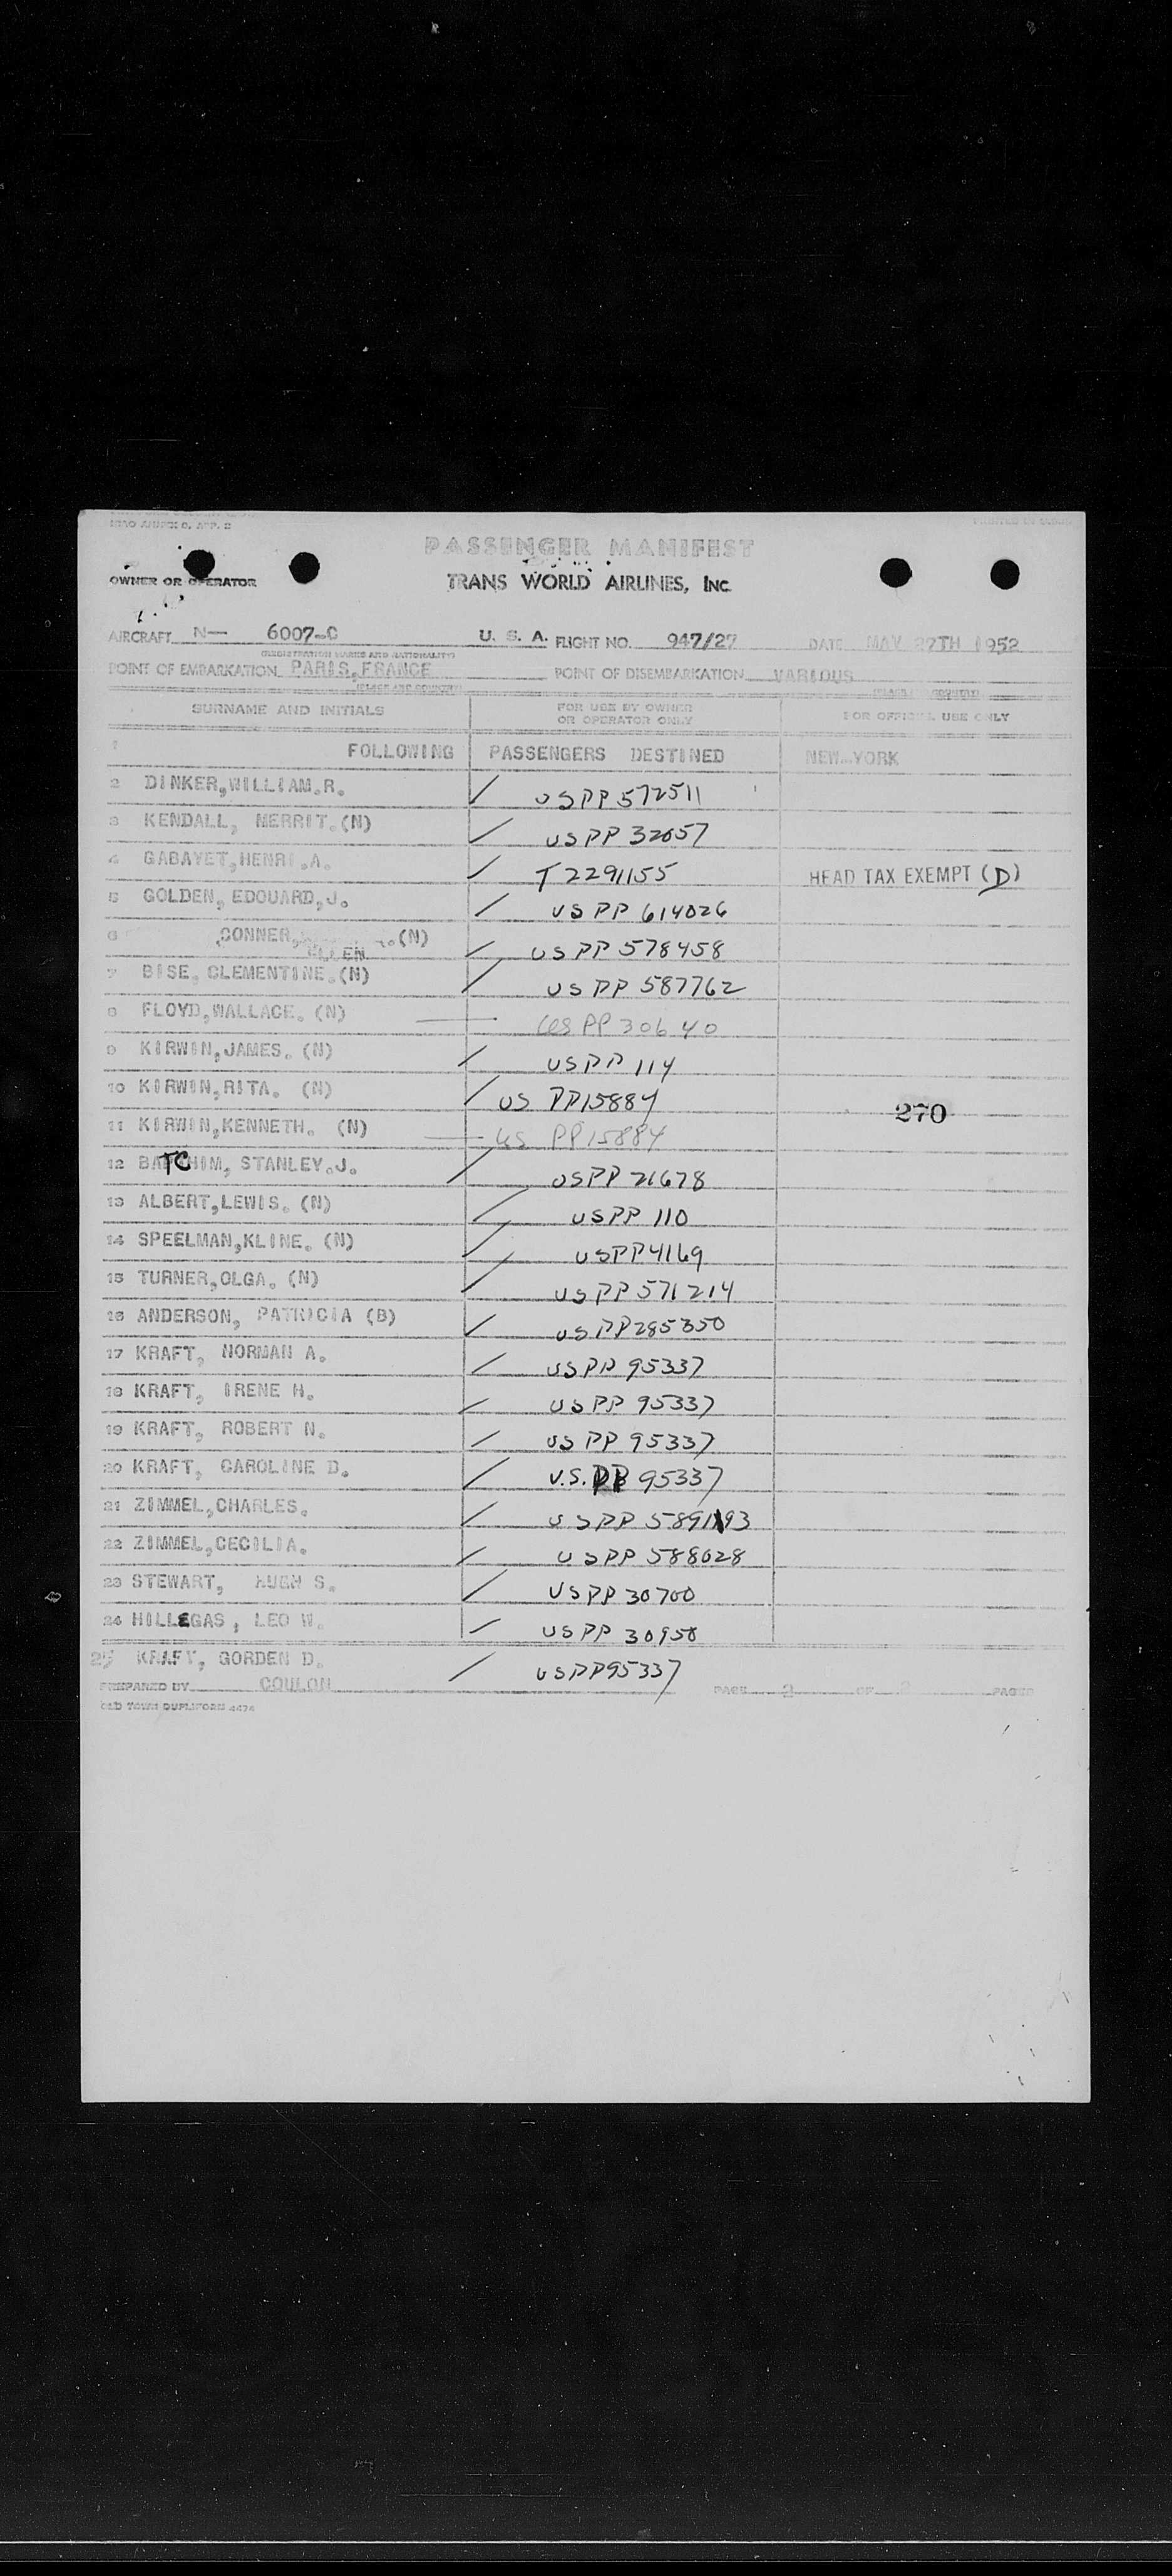 ICAO ANNEX 9, APP. 2
PASSENGER MANIFEST
OWNER OR OPERATOR TRANS WORLD AIRLINES, INC
AIRCRAFT N— 6007-C U. S. A. FLIGHT NO. 947/27 DATE MAY 27TH 1952
(REGISTRATION MARKS AND NATIONALITY)
POINT OF EMBARKATION PARIS,FRANCE POINT OF DISEMBARKATION VARIOUS
(PLACE AND COUNTRY) (PLACE AND COUNTRY)
SURNAME AND INITIALS FOR USE BY OWNER OR OPERATOR ONLY FOR OFFICIAL USE ONLY
1 FOLLOWING PASSENGERS DESTINED NEW-YORK
2 DINKER,WILLIAM.R. / USPP 572511
3 KENDALL, MERRIT.(N) / US PP 32057
4 GABAYET,HENRI.A. / T 2291155 HEAD TAX EXEMPT (D)
5 GOLDEN, EDOUARD,J. / US PP 614026
6 CONNER, ELLEN (N) / US PP 578458
7 BISE, CLEMENTINE.(N) / US PP 587762
8 FLOYD,WALLACE. (N) — US PP 30640
9 KIRWIN,JAMES. (N) / US PP 114
10 KIRWIN,RITA. (N) / US PP15884
270
11 KIRWIN,KENNETH. (N) — US PP 15884
12 BATCHIM, STANLEY.J. / USPP 21678
13 ALBERT,LEWIS. (N) / USPP 110
14 SPEELMAN,KLINE. (N) / USPP4169
15 TURNER,OLGA. (N) / US PP 571214
16 ANDERSON, PATRICIA (B) / US PP285350
17 KRAFT, NORMAN A. / US PP 95337
18 KRAFT, IRENE H. / US PP 95337
19 KRAFT, ROBERT N. / US PP 95337
20 KRAFT, CAROLINE D. / U.S.PP 95337
21 ZIMMEL,CHARLES. / USPP 589193
22 ZIMMEL,CECILIA. / USPP 588028
23 STEWART, HUGH S. / USPP 30700
24 HILLEGAS, LEO W. / USPP 30950
25 KRAFT, GORDEN D. / USPP95337
PREPARED BY COULON PAGE 2 OF 2 PAGES
OLD TOWN DUPLIFORM 4474